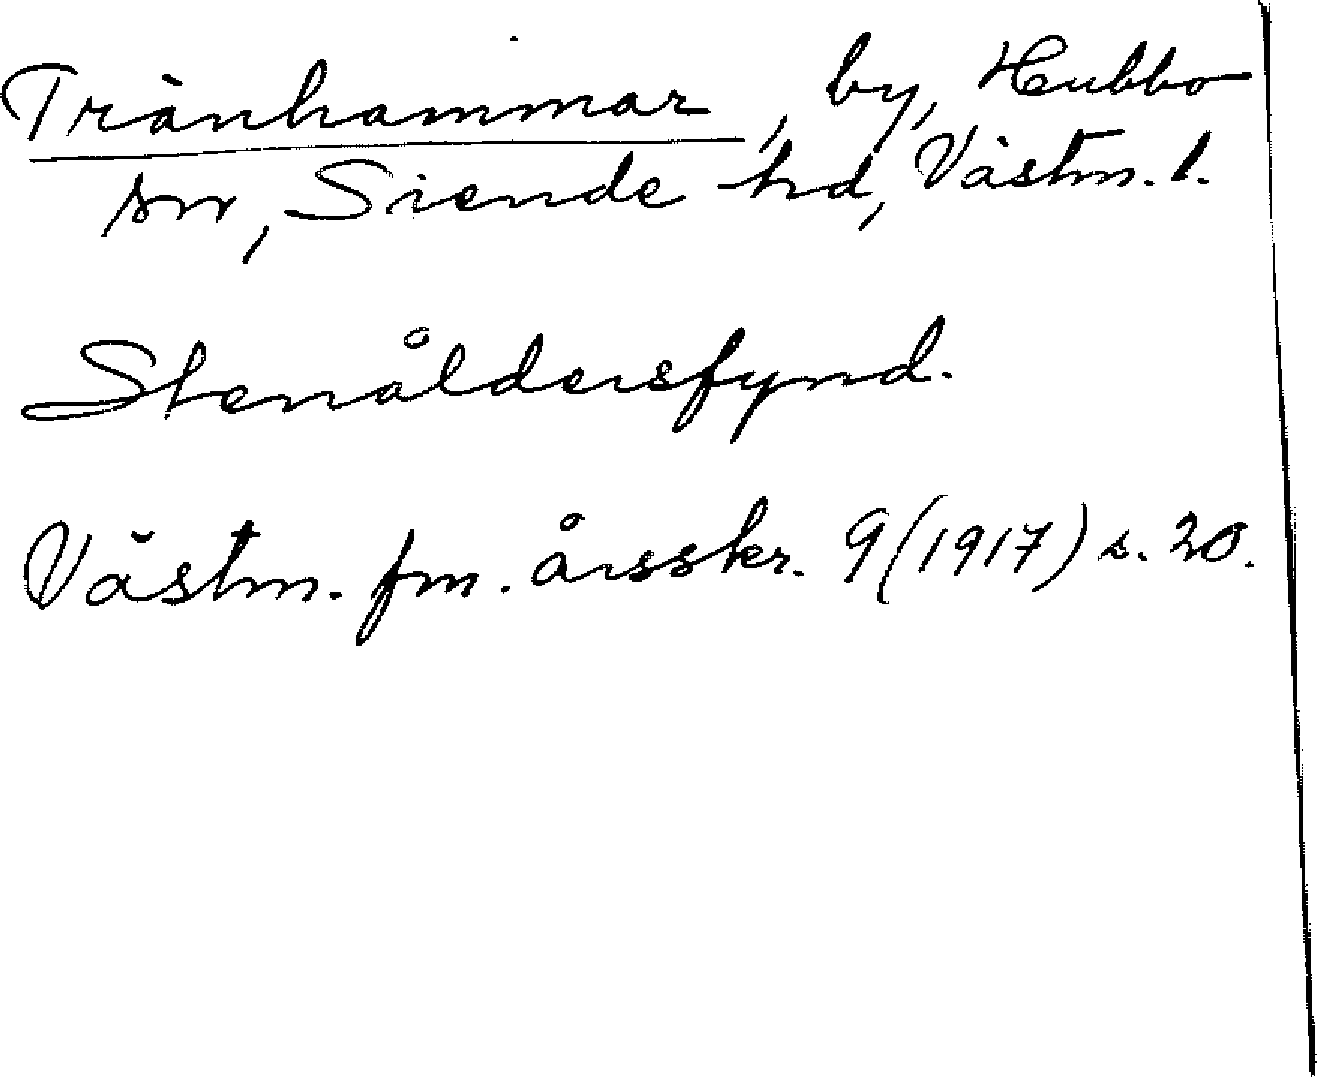 Tränhammar, by, Hubbo
sn, Siende hd, Västm. l.
Stenåldersfynd.
Västm. fm. årsskr. 9 (1917) s. 20.